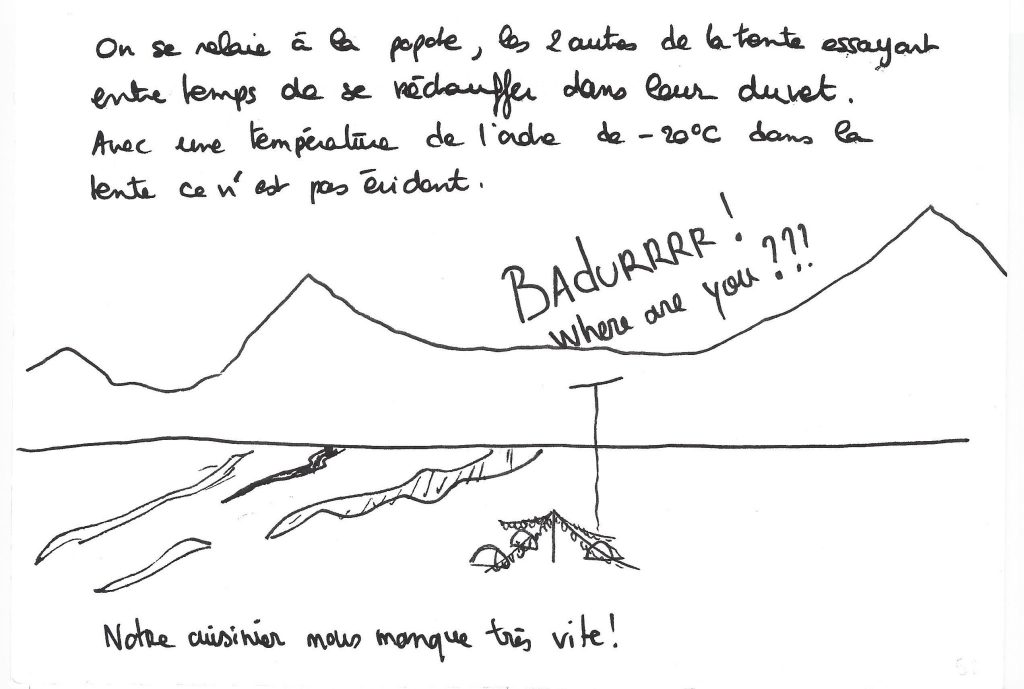 On se relaie à la popote, les 2 autres de la tente essayant
entre temps de se réchauffer dans leur duvet.
Avec une température de l'ordre de -20°C dans la
tente ce n'est pas évident.
BAdURRRR!
where are you???
Notre cuisinier nous manque très vite!